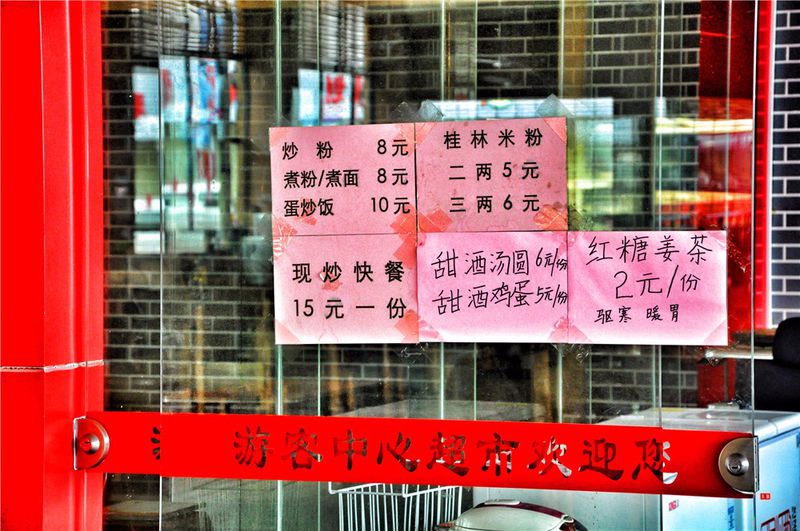 炒 粉 8元
煮粉/煮面 8元
蛋炒饭 10元
桂林米粉
二两5元
三两6元
现炒快餐
15元一份
甜酒汤圆 6元/份
甜酒鸡蛋 5元/份
红糖姜茶
2元/份
驱寒 暖胃
游客中心超市欢迎您